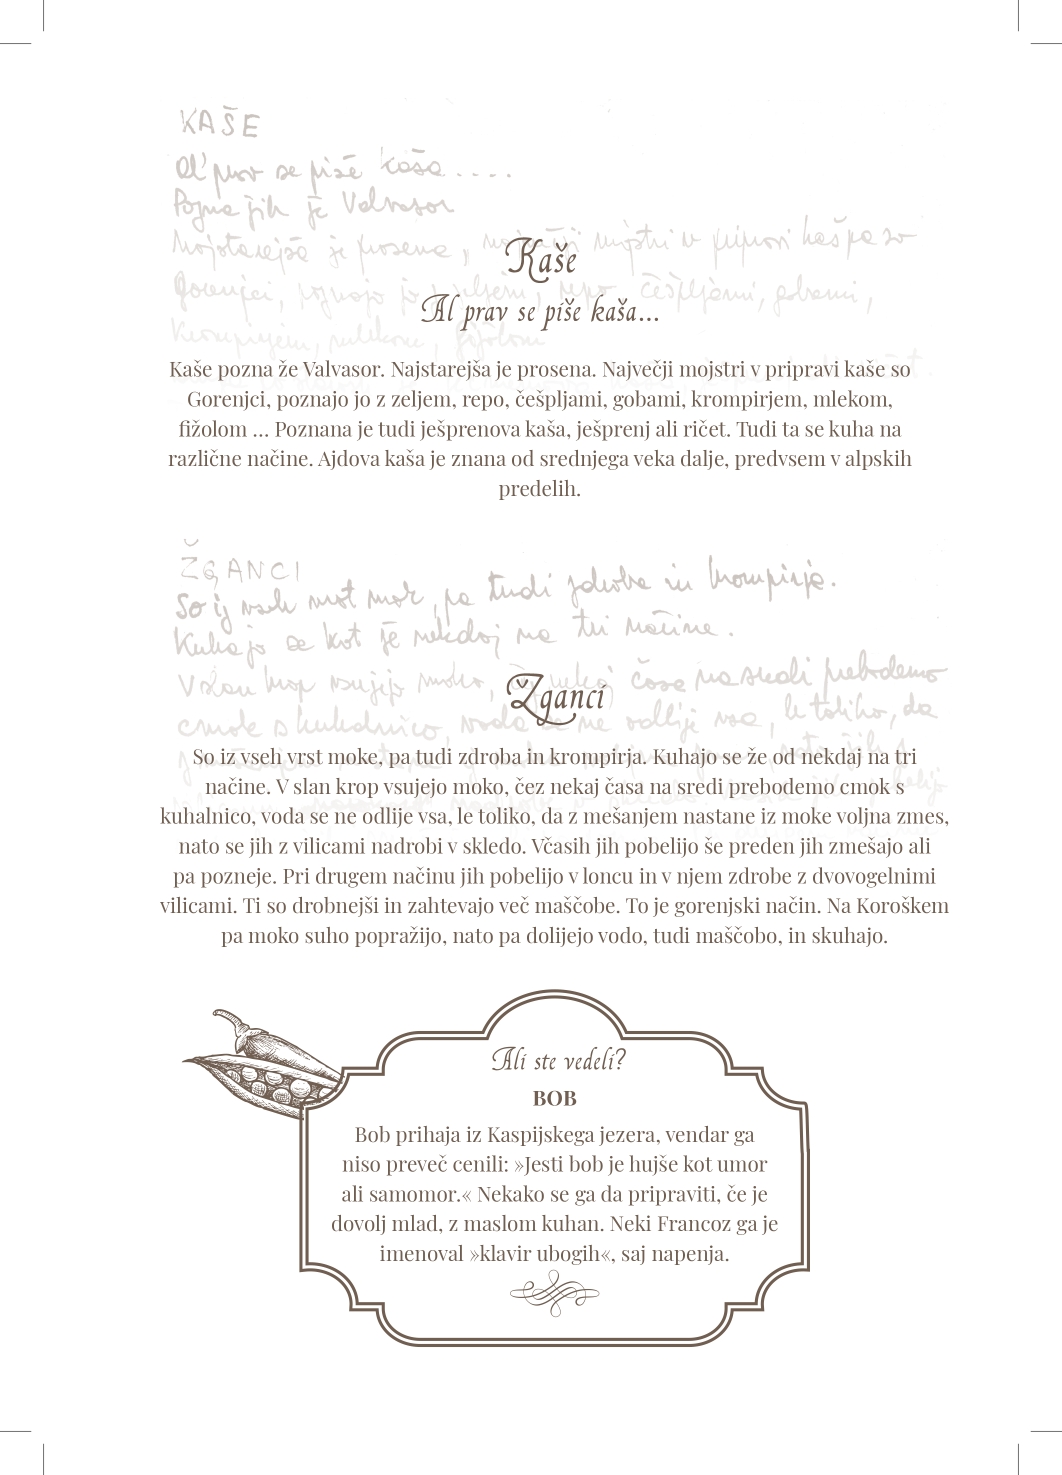 KAŠE
Al' prav se piše kaša.....
Pozna jih je Valvasor
Najstarejša je prosena, največji mojstri v pripravi kaš pa so
Gorenjci, poznajo jo z zeljem, repo, češpljami, gobami,
krompirjem, mlekom, fižolom
Kaše
Al prav se piše kaša...
Kaše pozna že Valvasor. Najstarejša je prosena. Največji mojstri v pripravi kaše so
Gorenjci, poznajo jo z zeljem, repo, češpljami, gobami, krompirjem, mlekom,
fižolom ... Poznana je tudi ješprenova kaša, ješprenj ali ričet. Tudi ta se kuha na
različne načine. Ajdova kaša je znana od srednjega veka dalje, predvsem v alpskih
predelih.
ŽGANCI
So iz vseh vrst mok, pa tudi zdroba in krompirja.
Kuhajo se kot že nekdaj na tri načine.
V slan krop vsujejo moko, čez nekaj časa na sredi prebodemo
cmok s kuhalnico, voda se ne odlije vsa, le toliko, da
Žganci
So iz vseh vrst moke, pa tudi zdroba in krompirja. Kuhajo se že od nekdaj na tri
načine. V slan krop vsujejo moko, čez nekaj časa na sredi prebodemo cmok s
kuhalnico, voda se ne odlije vsa, le toliko, da z mešanjem nastane iz moke voljna zmes,
nato se jih z vilicami nadrobi v skledo. Včasih jih pobelijo še preden jih zmešajo ali
pa pozneje. Pri drugem načinu jih pobelijo v loncu in v njem zdrobe z dvovogelnimi
vilicami. Ti so drobnejši in zahtevajo več maščobe. To je gorenjski način. Na Koroškem
pa moko suho popražijo, nato pa dolijejo vodo, tudi maščobo, in skuhajo.
Ali ste vedeli?
BOB
Bob prihaja iz Kaspijskega jezera, vendar ga
niso preveč cenili: »Jesti bob je hujše kot umor
ali samomor.« Nekako se ga da pripraviti, če je
dovolj mlad, z maslom kuhan. Neki Francoz ga je
imenoval »klavir ubogih«, saj napenja.